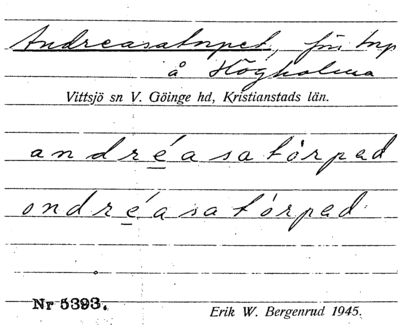 Andreasatorpet, förr torp
å Högholma
Vittsjö sn V. Göinge hd, Kristianstads län.
andréasatȯrpad
ondréasatȯrpad
Nr 5393.
Erik W. Bergenrud 1945.